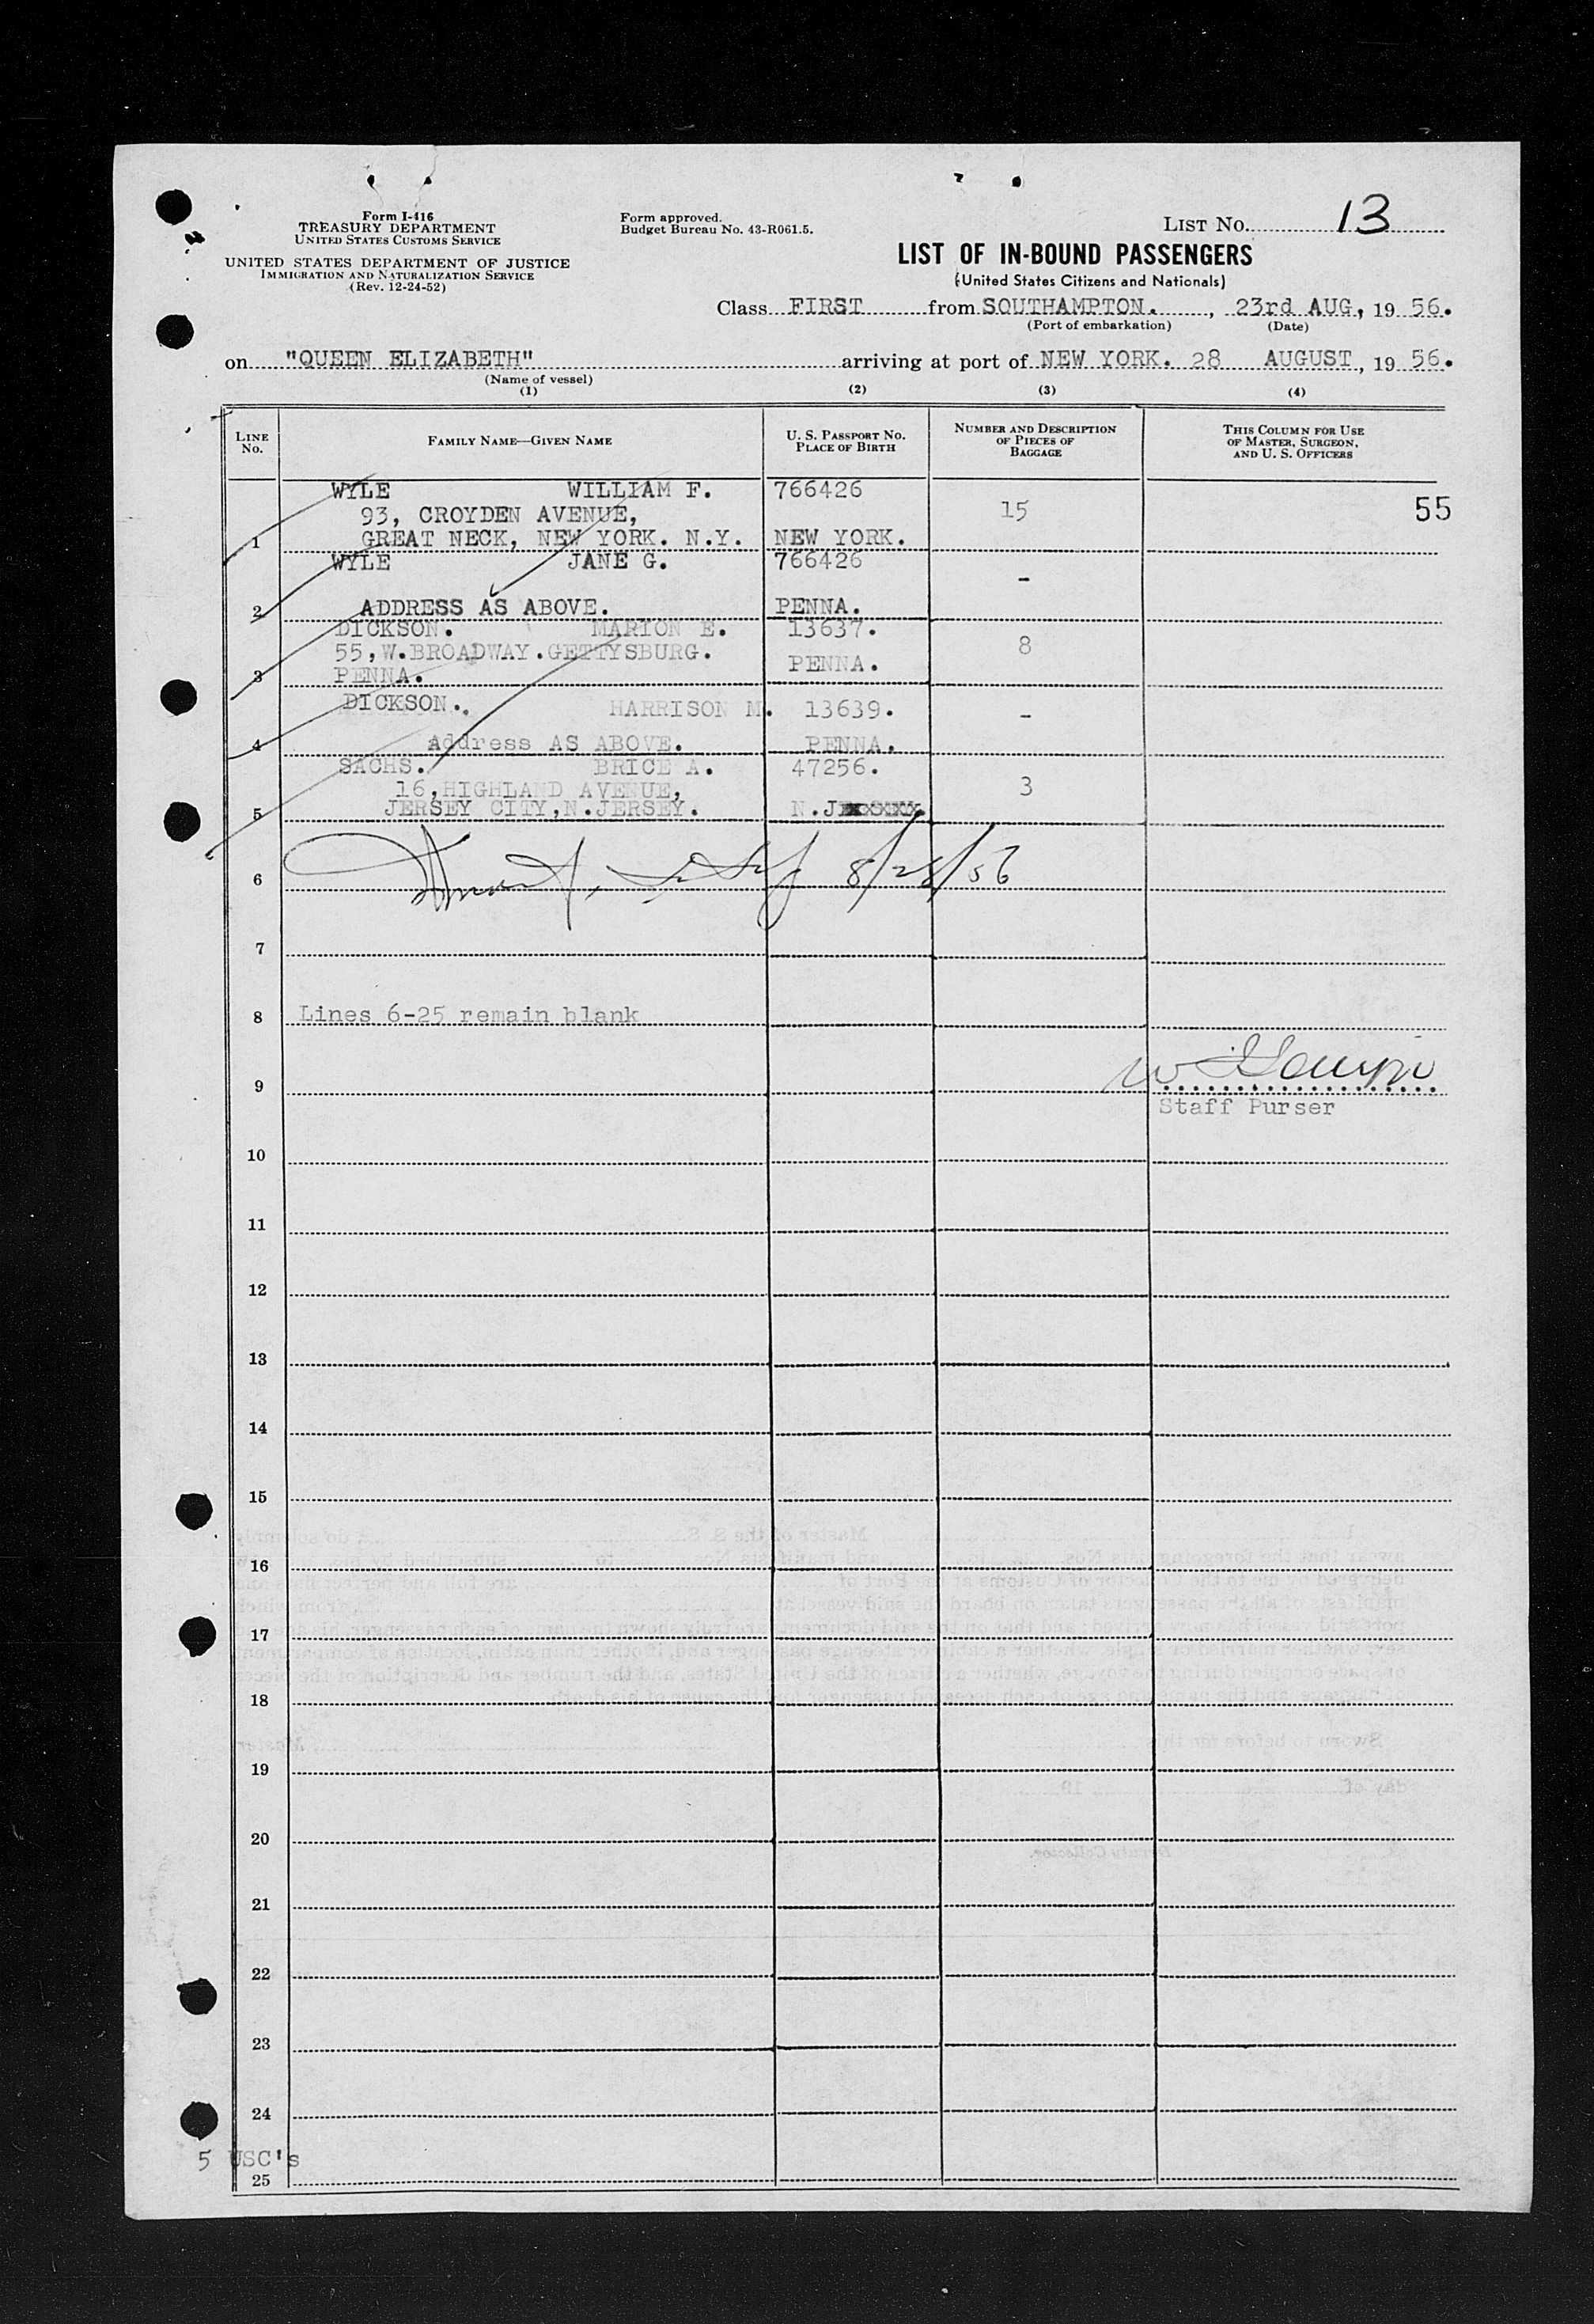 Form I-416
TREASURY DEPARTMENT
UNITED STATES CUSTOMS SERVICE
UNITED STATES DEPARTMENT OF JUSTICE
IMMIGRATION AND NATURALIZATION SERVICE
(Rev. 12-24-52)
Form approved.
Budget Bureau No. 43-R061.5.
LIST No. 13
LIST OF IN-BOUND PASSENGERS
(United States Citizens and Nationals)
Class FIRST from SOUTHAMPTON. , 23rd AUG, 19 56.
(Port of embarkation) (Date)
on "QUEEN ELIZABETH" arriving at port of NEW YORK. 28 AUGUST, 19 56.
(Name of vessel)
(1) (2) (3) (4)
LINE No.
FAMILY NAME—GIVEN NAME
U. S. PASSPORT NO.
PLACE OF BIRTH
NUMBER AND DESCRIPTION
OF PIECES OF
BAGGAGE
THIS COLUMN FOR USE
OF MASTER, SURGEON,
AND U. S. OFFICERS
WYLE WILLIAM F. 766426
93, CROYDEN AVENUE, 15 55
1 GREAT NECK, NEW YORK. N.Y. NEW YORK.
WYLE JANE G. 766426
-
2 ADDRESS AS ABOVE. PENNA.
DICKSON. MARION E. 13637.
55,W.BROADWAY.GETTYSBURG. 8
3 PENNA. PENNA.
DICKSON. HARRISON M. 13639.
-
4 Address AS ABOVE. PENNA.
SACHS. BRICE A. 47256.
16,HIGHLAND AVENUE, 3
5 JERSEY CITY,N.JERSEY. N.J
6 8/28/56
7
8 Lines 6-25 remain blank
9
Staff Purser
10
11
12
13
14
15
16
17
18
19
20
21
22
23
24
5 USC's
25